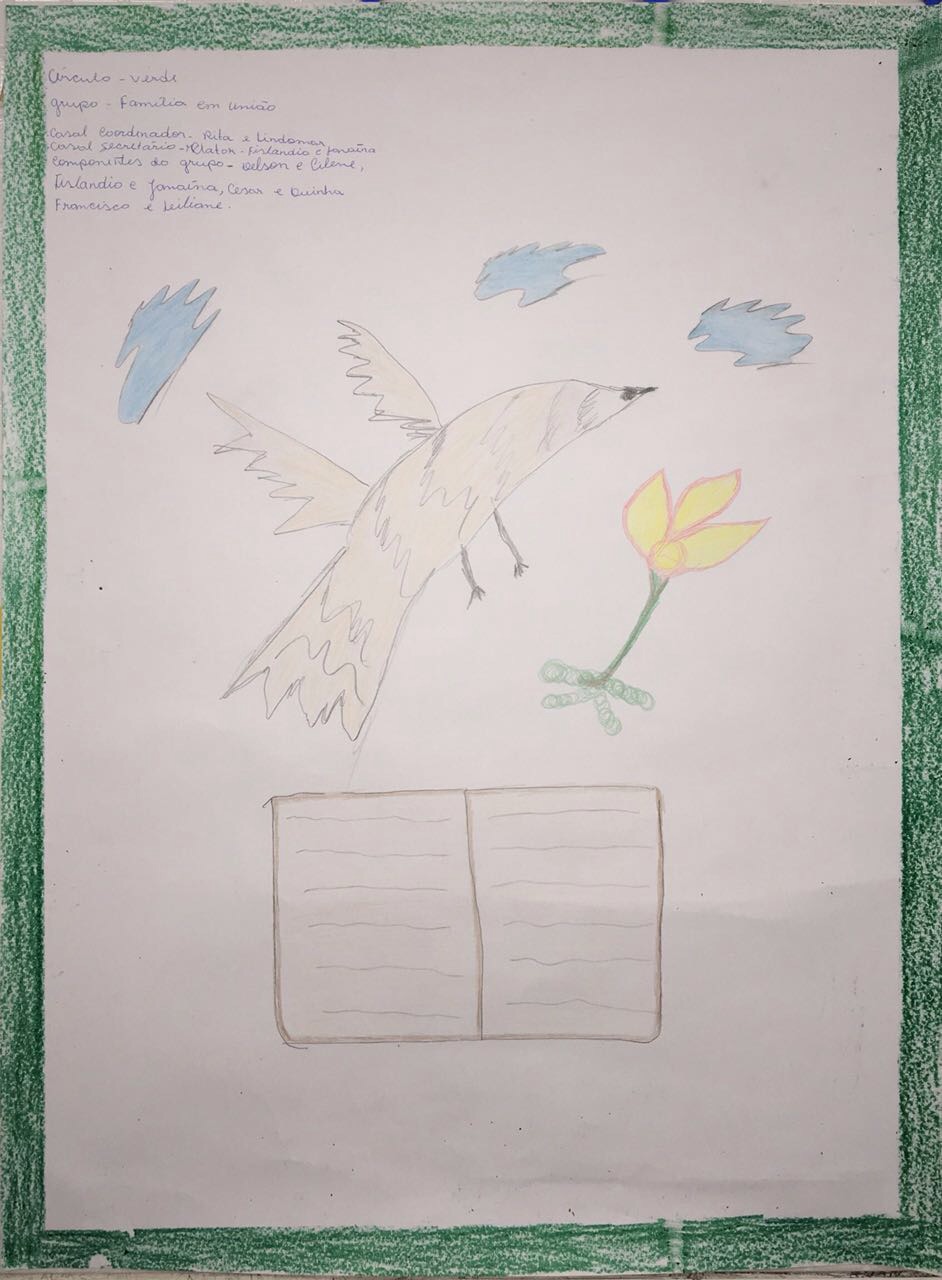 Círculo - verde
grupo - Família em união
Casal Coordenador - Rita e Lindomar
Casal Secretário - Relator - Firlandio e Janaína
Componentes do grupo - Delson e Cilene,
Firlandio e Janaína, Cesar e Quinha
Francisco e Leiliane.